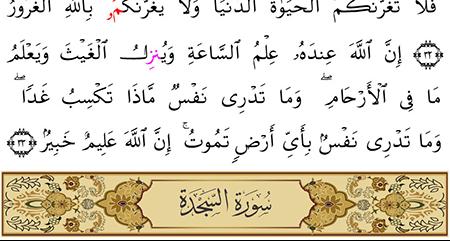 فَلَا تَغُرَّنَّكُمُ ٱلْحَيَوٰةُ ٱلدُّنْيَا وَلَا يَغُرَّنَّكُمُۥ بِٱللَّهِ ٱلْغَرُورُ
٣٢ إِنَّ ٱللَّهَ عِندَهُۥ عِلْمُ ٱلسَّاعَةِ وَيُنزِلُ ٱلْغَيْثَ وَيَعْلَمُ
مَا فِى ٱلْأَرْحَامِۖ وَمَا تَدْرِى نَفْسٌ مَّاذَا تَكْسِبُ غَدًاۖ
وَمَا تَدْرِى نَفْسٌۢ بِأَىِّ أَرْضٍ تَمُوتُۚ إِنَّ ٱللَّهَ عَلِيمٌ خَبِيرٌۢ ٣٣
سُورَةُ السَّجْدَةِ